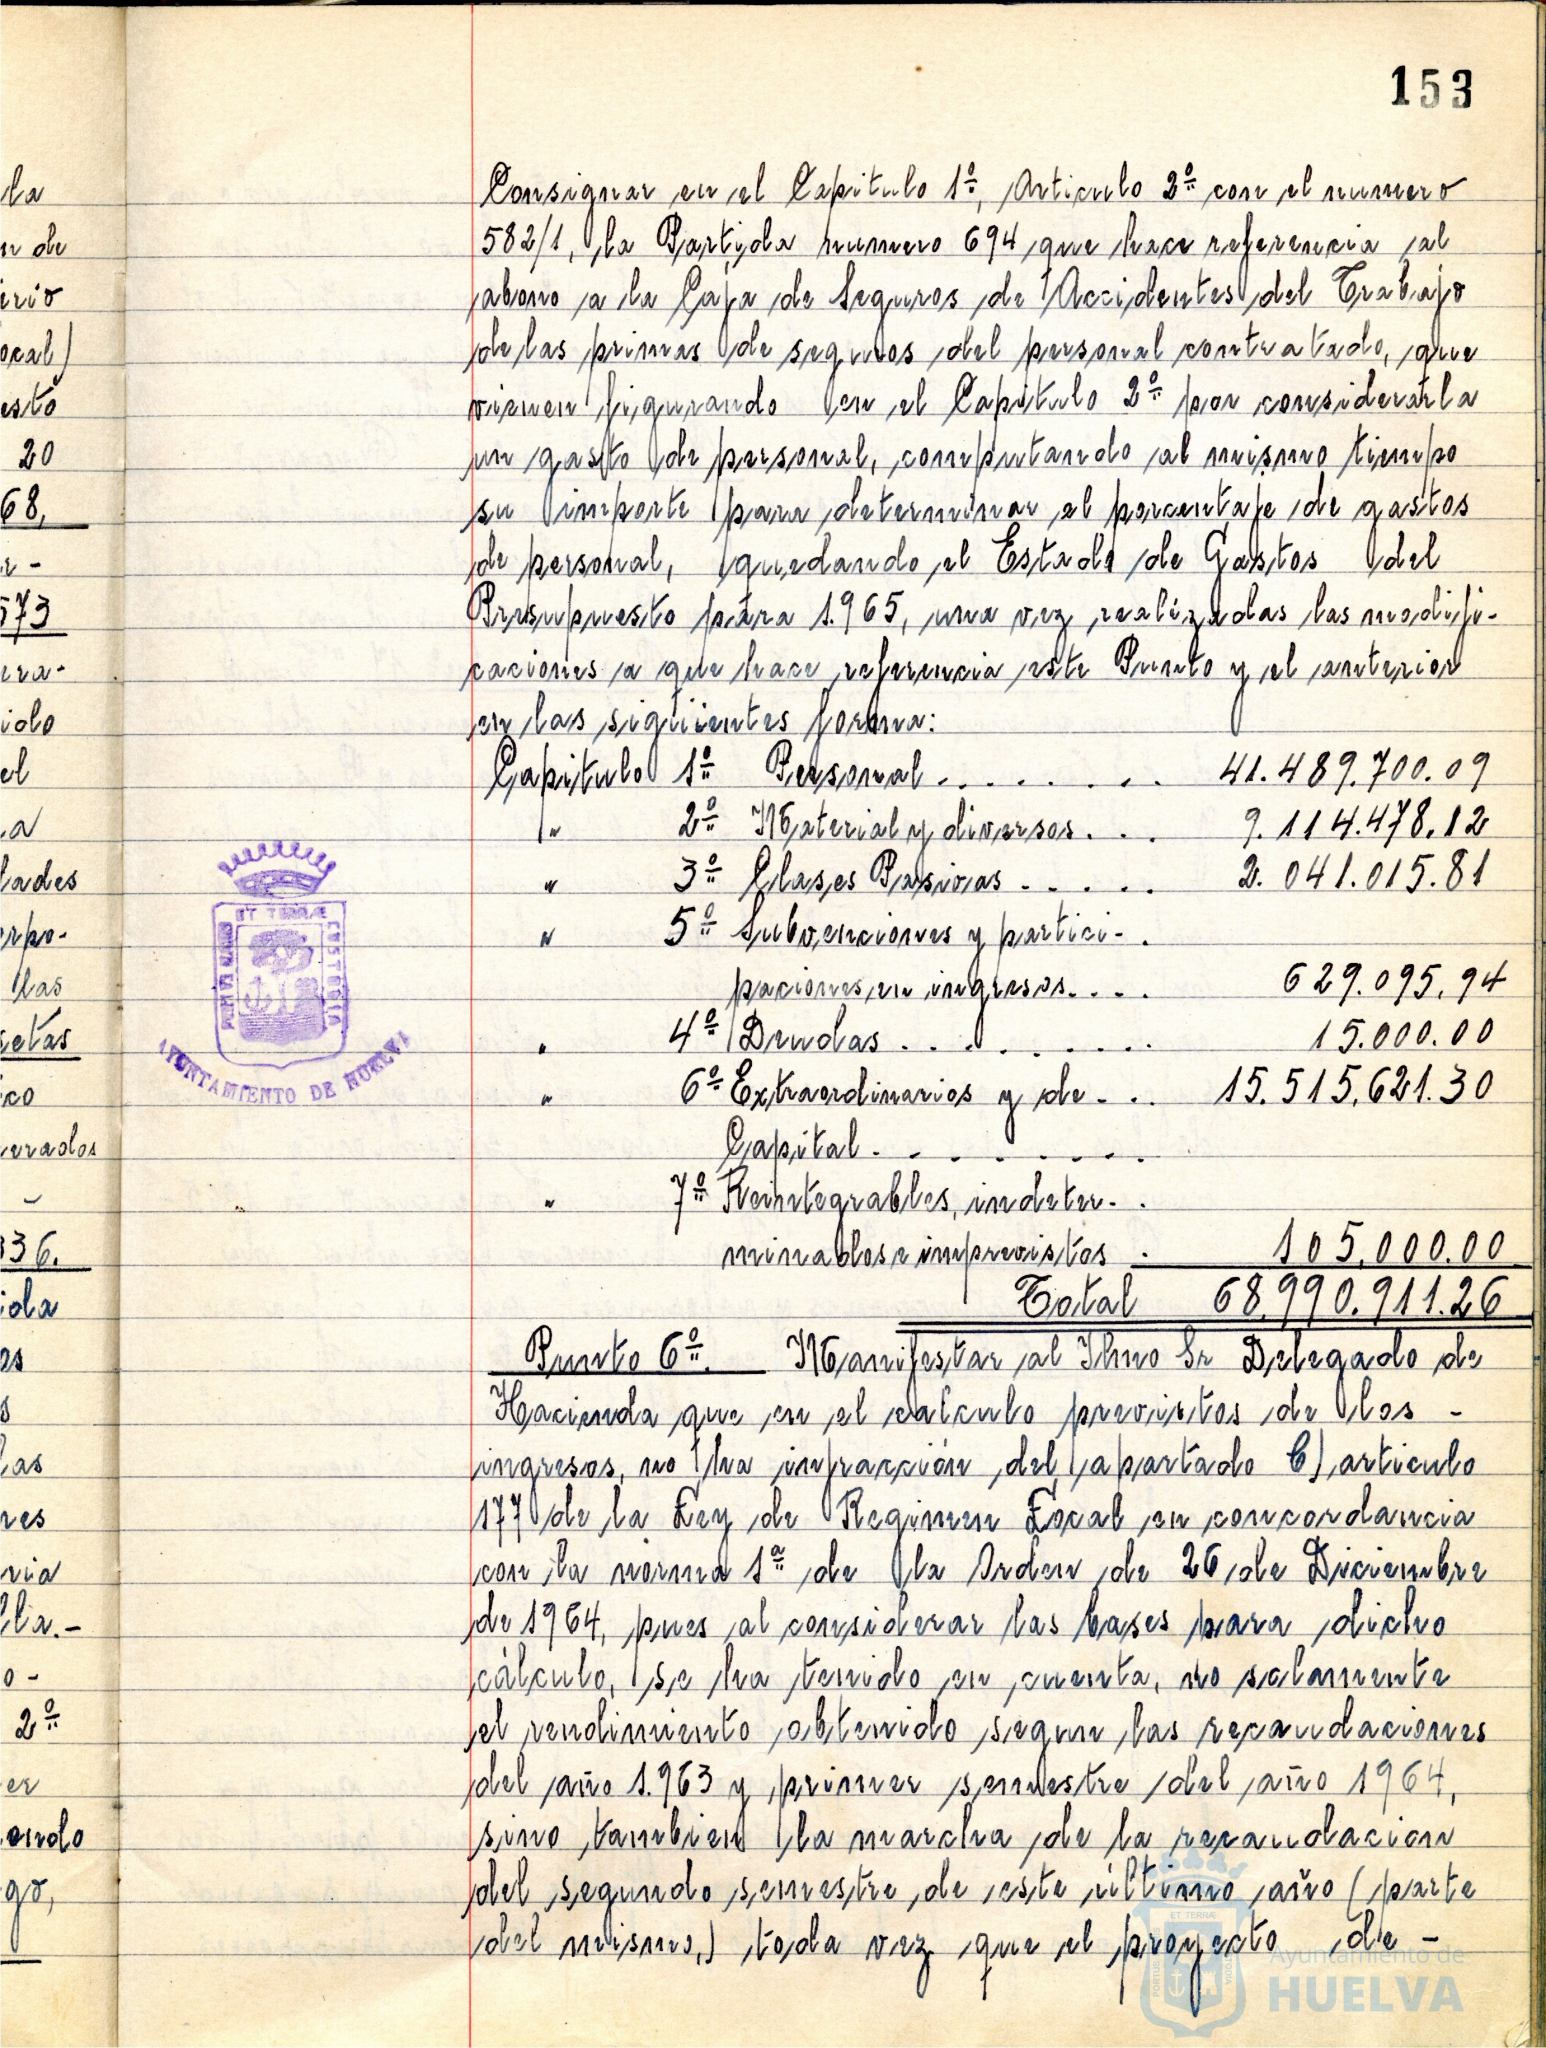 153
la
n de
erio
ocal)
esto
20
68,
r-
573
era-
iolo
el
.a
lades
orpo-
las
setas
co
erados
-
336.
iola
as
s
las
res
ria
lla.-
o-
2º
er
ondo
go,
Consignar en el Capitulo 1º, Articulo 2º con el numero
582/1, la Partida numero 694 que hace referencia al
abono a la Caja de Seguros de Accidentes del Trabajo
de las primas de seguros del personal contratado, que
vienen figurando en el Capitulo 2º por considerarla
un gasto de personal, computando al mismo tiempo
su importe para determinar el porcentaje de gastos
de personal, quedando el Estado de Gastos del
Presupuesto para 1.965, una vez realizadas las modifi-
caciones a que hace referencia este Punto y el anterior
en las sigüientes forma:
Capitulo 1º Personal . . . . . . . 41.489.700.09
" 2º Material y diversos . . . 9.114.478.12
" 3º Clases Pasivas . . . . . 2.041.015.81
" 5º Subvenciones y partici- .
paciones en ingresos. . . . 629.095,94
" 4º Deudas . . . . . . . . . 15.000.00
" 6º Extraordinarios y de - . . 15.515,621.30
Capital . . . . . . . . .
" 7º Reintegrables, indeter- .
minados e imprevistos . 105,000.00
Total 68.990.911.26
Punto 6º. Manifestar al Ilmo Sr Delegado de
Hacienda que en el calculo previstos de los -
ingresos, no ha infracción del apartado C) articulo
177 de la Ley de Regimen Local en concordancia
con la norma 1ª de la Orden de 26 de Diciembre
de 1964, pues al considerar las bases para dicho
cálculo, se ha tenido en cuenta, no solamente
el rendimiento obtenido segun las recaudaciones
del año 1.963 y primer semestre del año 1964,
sino tambien la marcha de la recaudacion
del segundo semestre de este último año (parte
del mismo,) toda vez que el proyecto de -
ET TERRÆ
CUSTODIA
AYUNTAMIENTO DE HUELVA
Ayuntamiento de
HUELVA